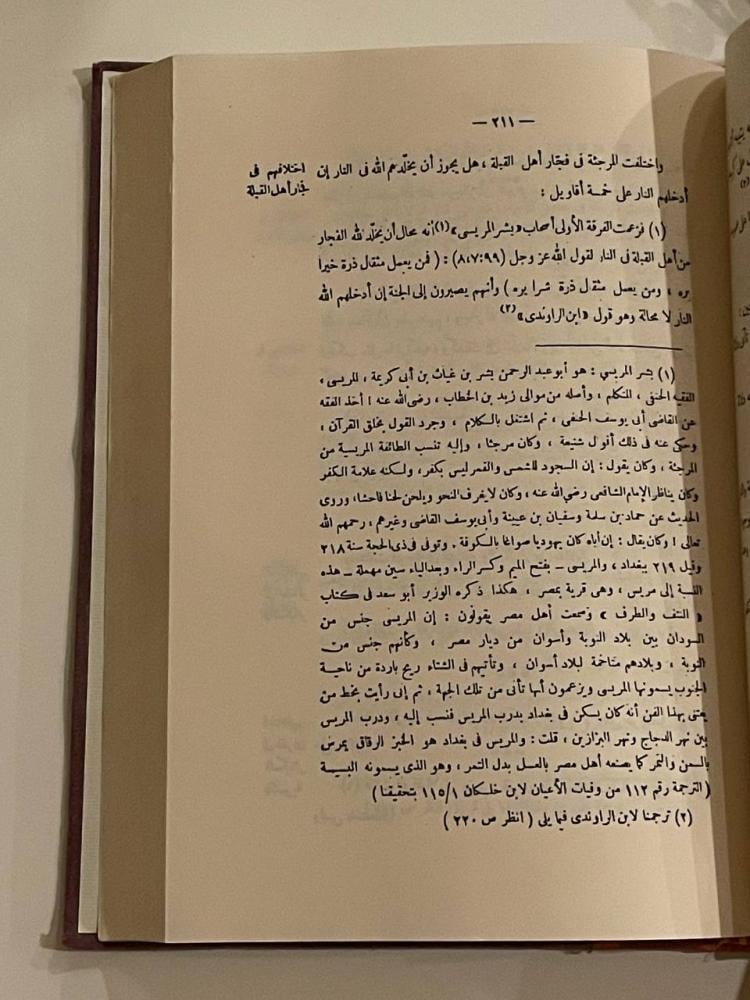 — ٢١١ —
واختلفت المرجئة فى فجّار أهل القبلة ، هل يجوز أن يخلّدهم الله فى النار إن
اختلافهم فى
فجار أهل القبلة
أدخلهم النار على خمسة أقاويل :
(١) فزعمت الفرقة الأولى أصحاب «بشر المريسى»(١) أنه محال أن يخلّد الله الفجار
من أهل القبلة فى النار لقول الله عز وجل (٩٩ : ٨،٧) : ( فمن يعمل مثقال ذرة خيرا
يره ، ومن يعمل مثقال ذرة شرا يره ) وأنهم يصيرون إلى الجنة إن أدخلهم الله
النار لا محالة وهو قول «ابن الراوندى»(٢)
(١) بشر المريسي : هو أبو عبد الرحمن بشر بن غياث بن أبى كريمة ، المريسى ،
الفقيه الحنفى ، المتكلم ، وأصله من موالى زيد بن الخطاب ، رضى الله عنه ! أخذ الفقه
عن القاضى أبى يوسف الحنفى ، ثم اشتغل بالكلام ، وجرد القول بخلق القرآن ،
وحكى عنه فى ذلك أقوال شنيعة ، وكان مرجئا ، وإليه تنسب الطائفة المريسية من
المرجئة ، وكان يقول : إن السجود للشمس والقمر ليس بكفر ، ولسكنه علامة الكفر
وكان يناظر الإمام الشافعى رضى الله عنه ، وكان لا يعرف النحو ويلحن لحنا فاحشا ، وروى
الحديث عن حماد بن سلمة وسفيان بن عيينة وأبى يوسف القاضى وغيرهم ، رحمهم الله
تعالى ! وكان يقال : إن أباه كان يهوديا صواغا بالكوفة . وتوفى فى ذى الحجة سنة ٢١٨
وقيل ٢١٩ ببغداد ، والمريسى – بفتح الميم وكسر الراء وبعد الياء سين مهملة – هذه
النسبة إلى مريس ، وهى قرية بمصر ، هكذا ذكره الوزير أبو سعد فى كتاب
« النتف والطرف » وسمعت أهل مصر يقولون : إن المريس جنس من
السودان بين بلاد النوبة وأسوان من ديار مصر ، وكأنهم جنس من
النوبة ، وبلادهم متاخمة لبلاد أسوان ، وتأتيهم فى الشتاء ريح باردة من ناحية
الجنوب يسمونها المريسى ويزعمون أنها تأتى من تلك الجهة ، ثم إنى رأيت بخط من
يعتنى بهذا الفن أنه كان يسكن فى بغداد بدرب المريس فنسب إليه ، ودرب المريس
بين نهر الدجاج ونهر البزازين ، قلت : والمريس فى بغداد هو الخبز الرقاق يمرس
بالسمن والتمر كما يصنعه أهل مصر بالعسل بدل التمر ، وهو الذى يسمونه البسيسة
( الترجمة رقم ١١٢ من وفيات الأعيان لابن خلكان ١/١١٥ بتحقيقنا )
(٢) ترجمنا لابن الراوندى فيما يلى ( انظر ص ٢٢٠ )